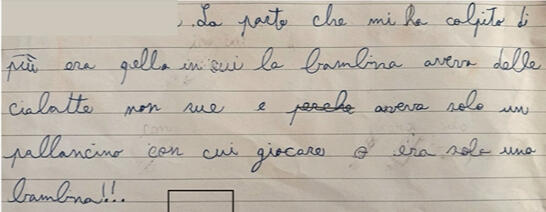 . La parte che mi ha colpito di
più era qella in sui la bambina aveva delle
cialatte non sue e perche aveva solo un
pallancino con cui giocare e era solo una
bambina!!!